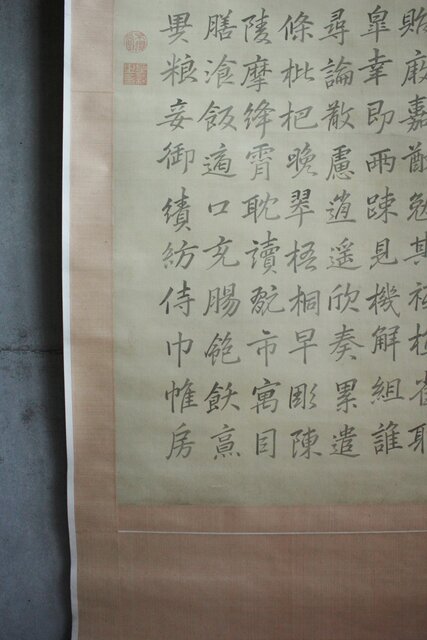 貽厥嘉猷勉其祗植省躬
皐幸即兩踈見機解組誰
尋論散慮逍遥欣奏累遣
條枇杷晚翠梧桐早彫陳
陵摩絳霄耽讀翫市寓目
膳飡飯適口充腸飽飫烹
異粮妾御績紡侍巾帷房